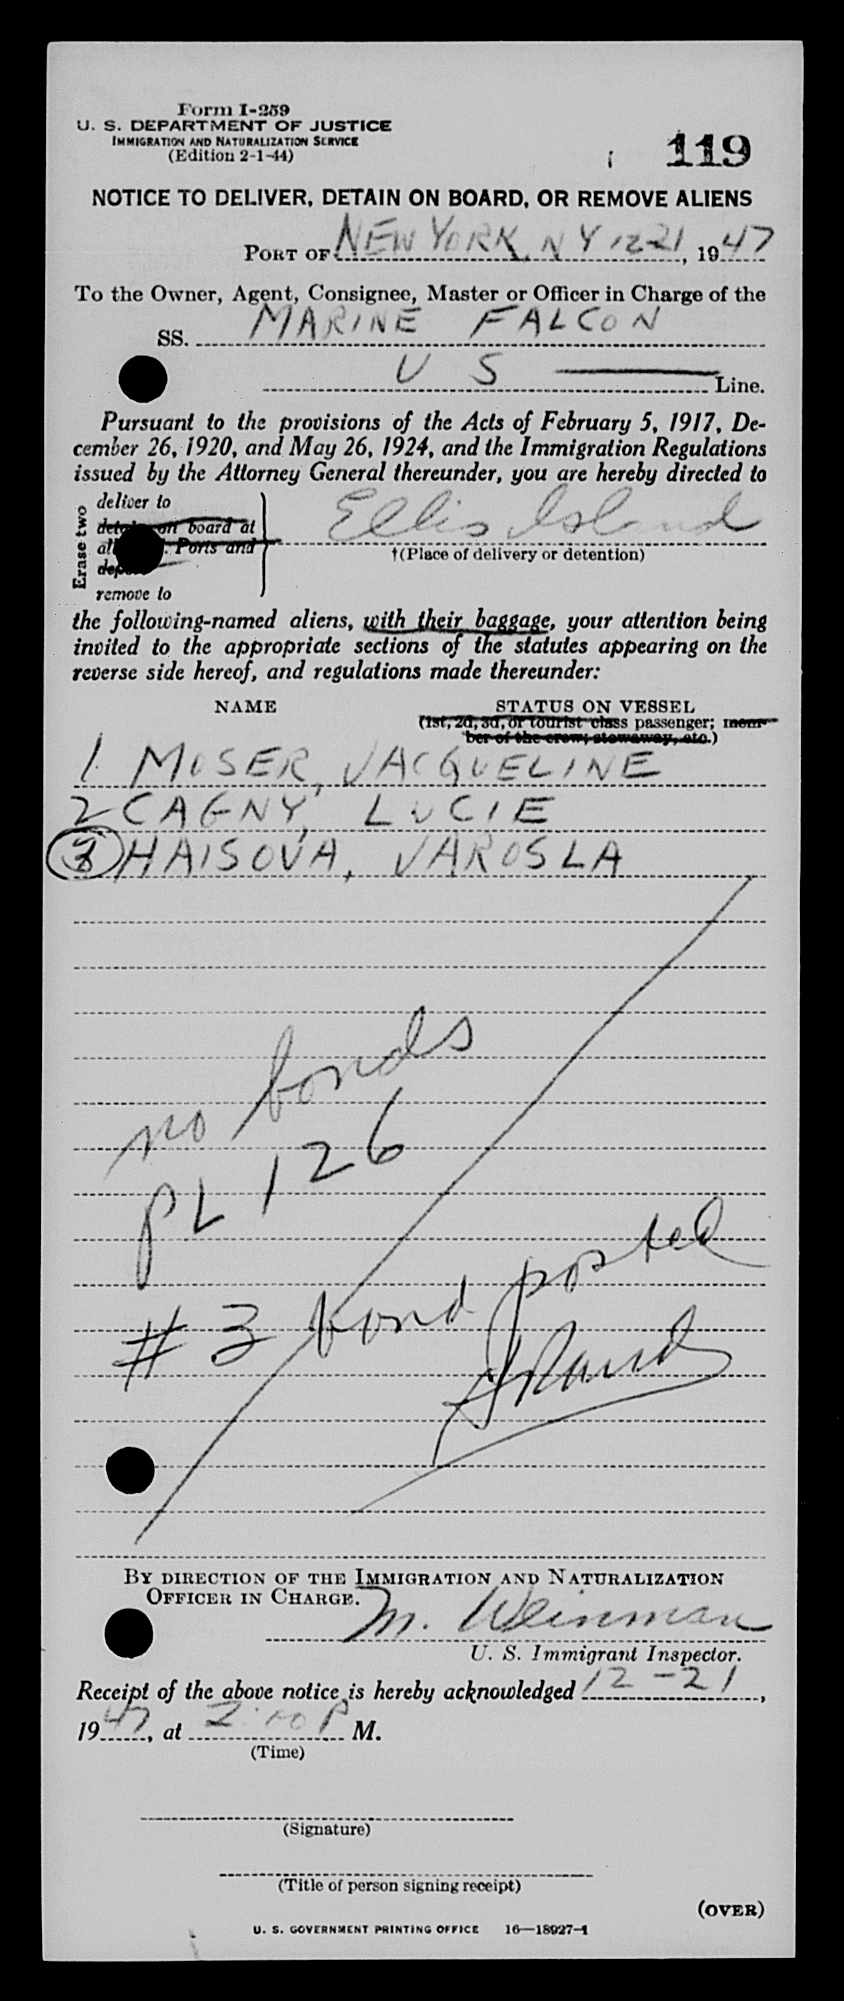 Form I-259
U. S. DEPARTMENT OF JUSTICE
IMMIGRATION AND NATURALIZATION SERVICE
(Edition 2-1-44)
119
NOTICE TO DELIVER, DETAIN ON BOARD, OR REMOVE ALIENS
PORT OF NEW YORK, N Y 12-21, 1947
To the Owner, Agent, Consignee, Master or Officer in Charge of the
SS. MARINE FALCON
U S Line.
Pursuant to the provisions of the Acts of February 5, 1917, De-
cember 26, 1920, and May 26, 1924, and the Immigration Regulations
issued by the Attorney General thereunder, you are hereby directed to
Erase two
deliver to
detain on board at
Ports and
remove to
Ellis Island
†(Place of delivery or detention)
the following-named aliens, with their baggage, your attention being
invited to the appropriate sections of the statutes appearing on the
reverse side hereof, and regulations made thereunder:
NAME STATUS ON VESSEL
(1st, 2d, 3d, or tourist class passenger; mem-
ber of the crew; stowaway, etc.)
1 MOSER, JACQUELINE
2 CAGNY, LUCIE
3 HAISOVA, JAROSLA
no bonds
PL 126
#3 bond posted
BY DIRECTION OF THE IMMIGRATION AND NATURALIZATION
OFFICER IN CHARGE.
M. Weinman
U. S. Immigrant Inspector.
Receipt of the above notice is hereby acknowledged 12-21,
1947, at 2:00 P M.
(Time)
(Signature)
(Title of person signing receipt)
(OVER)
U. S. GOVERNMENT PRINTING OFFICE 16—18927-1